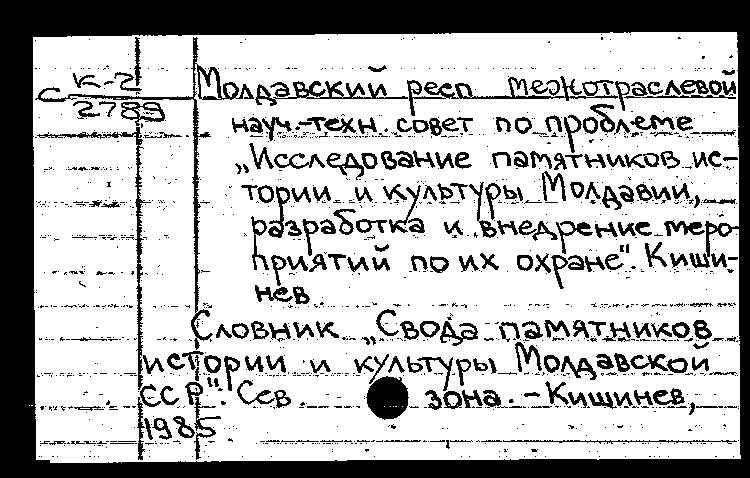 С К-2
2789
Молдавский респ межотраслевой
науч.-техн. совет по проблеме
„Исследование памятников ис-
тории и культуры Молдавии,
разработка и внедрение меро-
приятий по их охране". Киши-
нев.
Словник „Свода памятников
истории и культуры Молдавской
ССР". Сев. зона. - Кишинев,
1985.